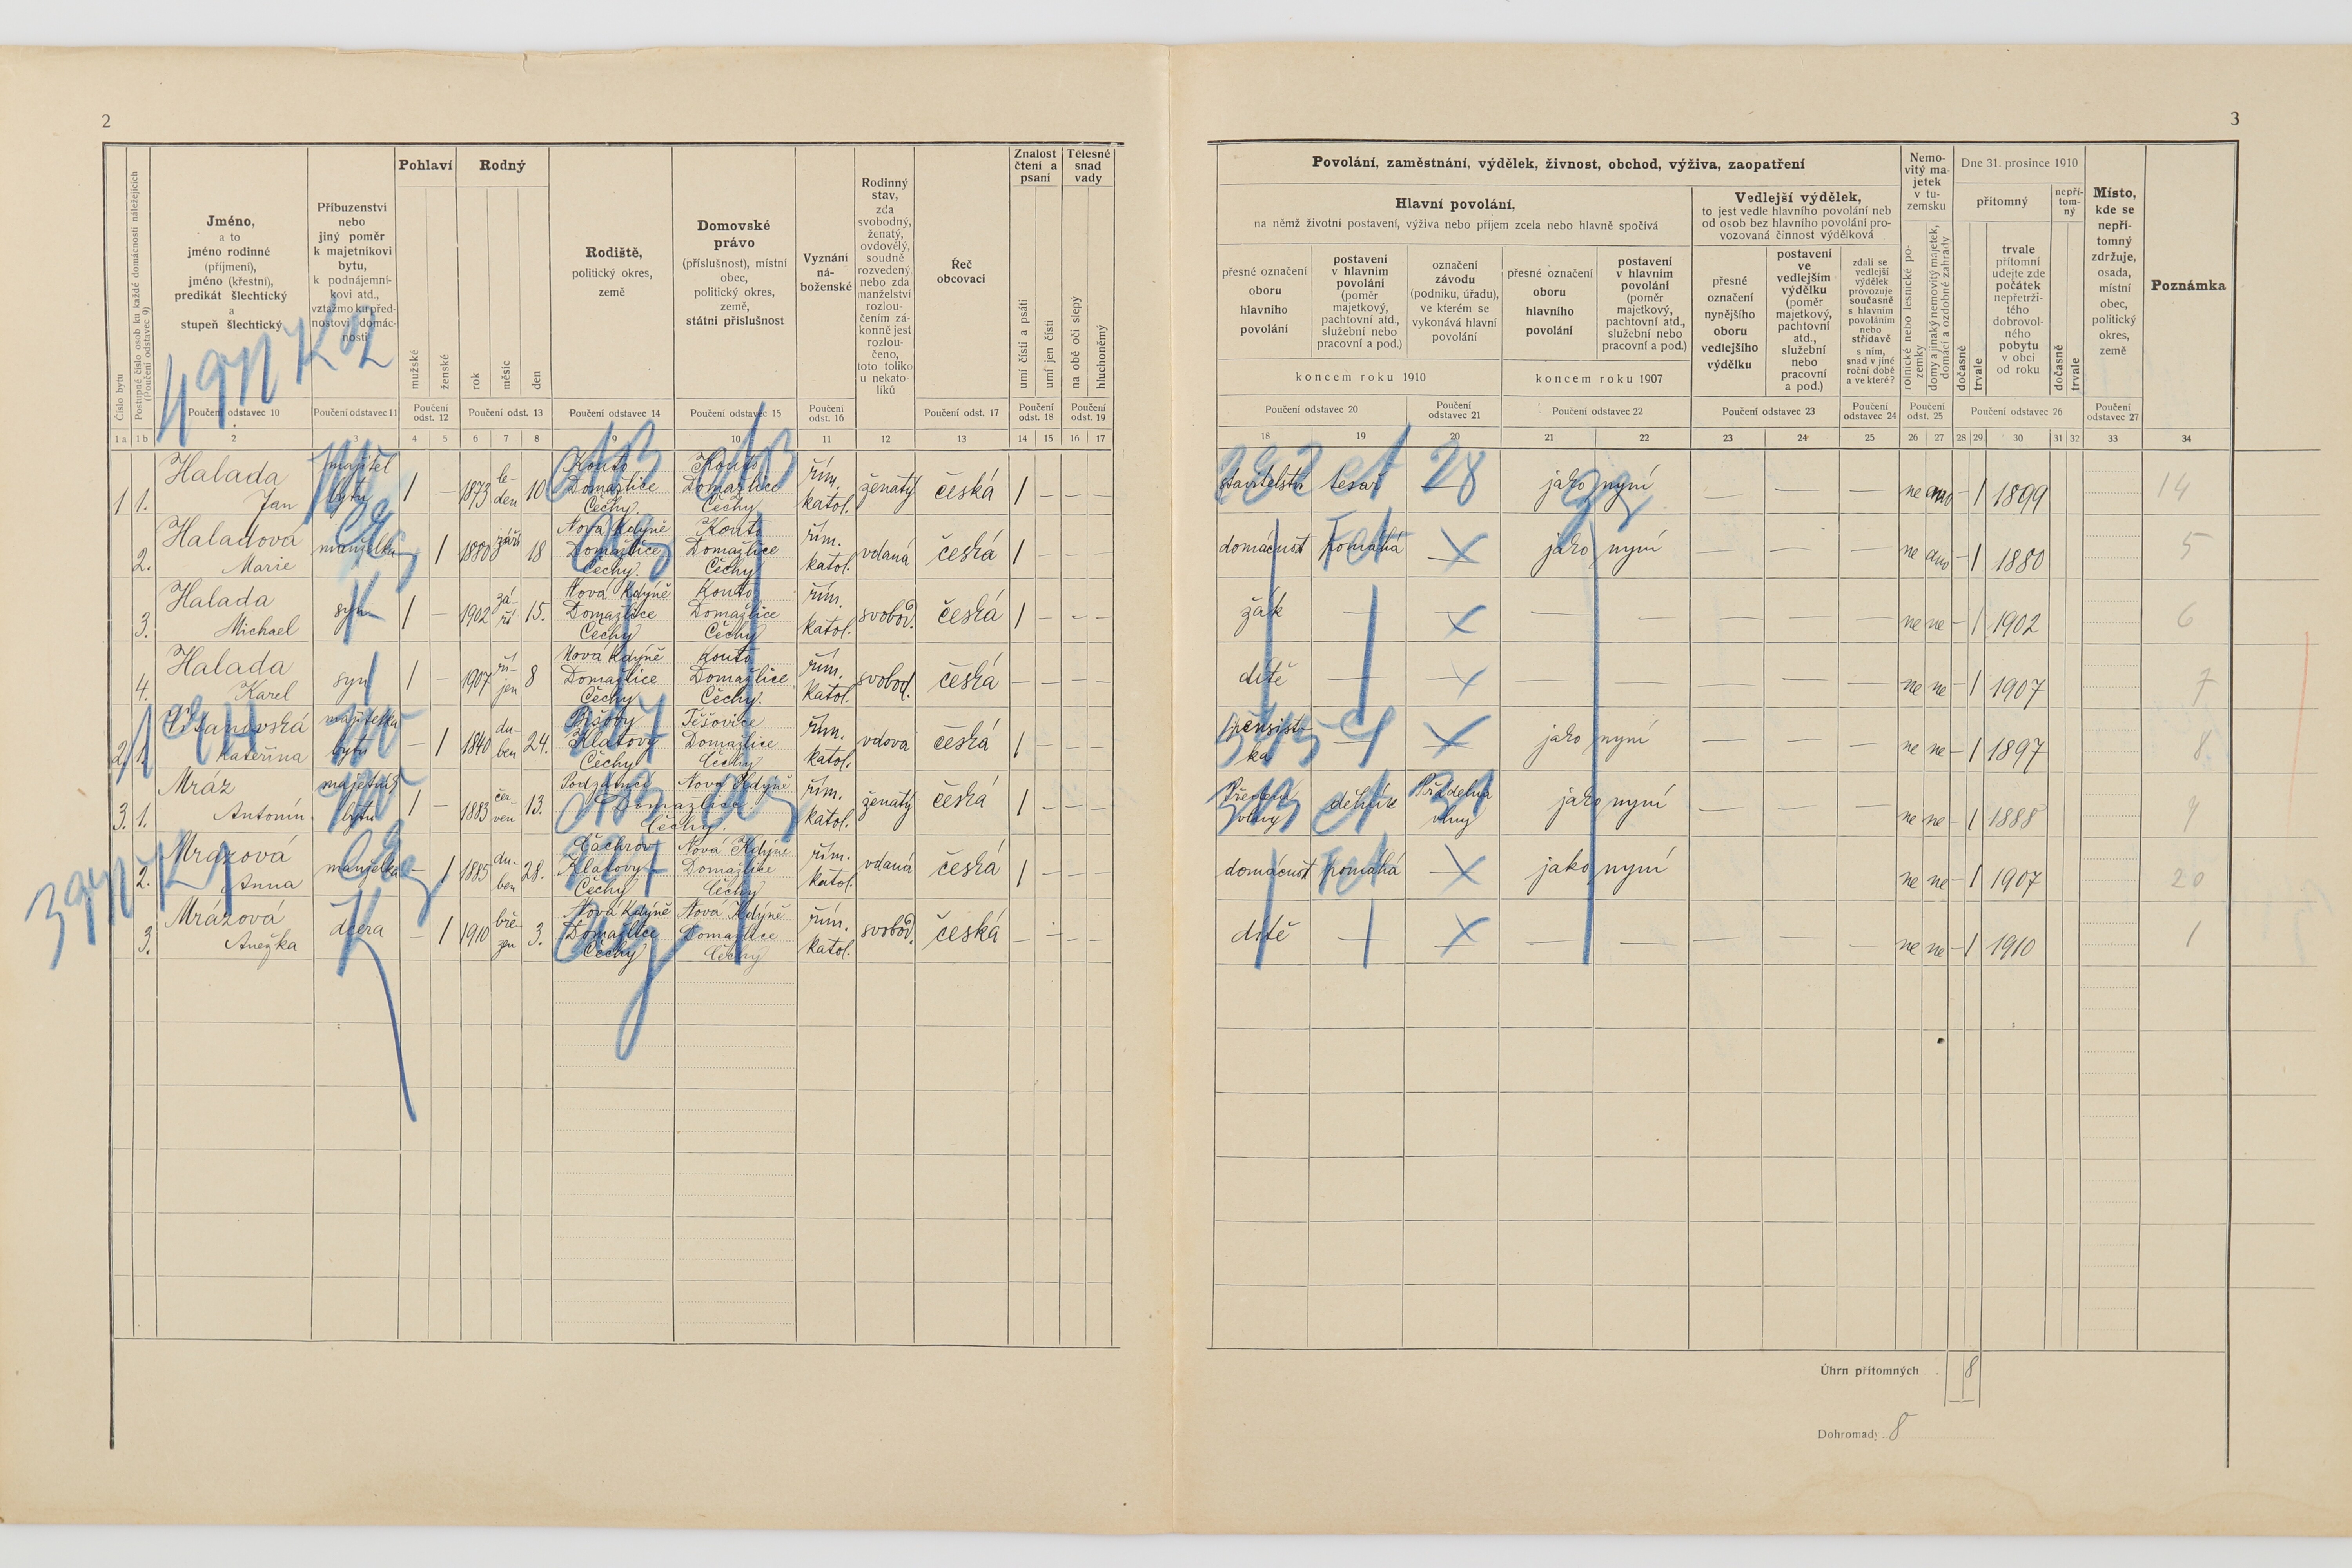 2
3
Číslo bytu
Postupné číslo osob ku každé domácnosti náležejících
(Poučení odstavec 9)
Jméno,
a to
jméno rodinné
(příjmení),
jméno (křestní),
predikát šlechtický
a
stupeň šlechtický
Příbuzenství
nebo
jiný poměr
k majetníkovi
bytu,
k podnájemní-
kovi atd.,
vztažmo ku před-
nostovi domác-
nosti
Pohlaví
mužské
ženské
Rodný
rok
měsíc
den
Rodiště,
politický okres,
země
Domovské
právo
(příslušnost), místní
obec,
politický okres,
země,
státní příslušnost
Vyznání
ná-
boženské
Rodinný
stav,
zda
svobodný,
ženatý,
ovdovělý,
soudně
rozvedený
nebo zda
manželství
rozlou-
čením zá-
konně jest
rozlou-
čeno,
toto toliko
u nekato-
líků
Řeč
obcovací
Znalost
čtení a
psaní
umí čísti a psáti
umí jen čísti
Tělesné
snad
vady
na obě oči slepý
hluchoněmý
Povolání, zaměstnání, výdělek, živnost, obchod, výživa, zaopatření
Hlavní povolání,
na němž životní postavení, výživa nebo příjem zcela nebo hlavně spočívá
přesné označení
oboru
hlavního
povolání
postavení
v hlavním
povolání
(poměr
majetkový,
pachtovní atd.,
služební nebo
pracovní a pod.)
označení
závodu
(podniku, úřadu),
ve kterém se
vykonává hlavní
povolání
koncem roku 1910
přesné označení
oboru
hlavního
povolání
postavení
v hlavním
povolání
(poměr
majetkový,
pachtovní atd.,
služební nebo
pracovní a pod.)
koncem roku 1907
Vedlejší výdělek,
to jest vedle hlavního povolání neb
od osob bez hlavního povolání pro-
vozovaná činnost výdělková
přesné
označení
nynějšího
oboru
vedlejšího
výdělku
postavení
ve
vedlejším
výdělku
(poměr
majetkový,
pachtovní
atd.,
služební
nebo
pracovní
a pod.)
zdali se
vedlejší
výdělek
provozuje
současně
s hlavním
povoláním
nebo
střídavě
s ním,
snad v jiné
roční době
a ve které?
Nemo-
vitý ma-
jetek
v tu-
zemsku
rolnické nebo lesnické po-
zemky
domy a jinaký nemovitý majetek,
domácí a ozdobné zahrady
Dne 31. prosince 1910
přítomný
dočasně
trvale
trvale
přítomní
udejte zde
počátek
nepřetrži-
tého
dobrovol-
ného
pobytu
v obci
od roku
nepří-
tom-
ný
dočasně
trvale
Místo,
kde se
nepří-
tomný
zdržuje,
osada,
místní
obec,
politický
okres,
země
Poznámka
Poučení odstavec 10
Poučení odstavec 11
Poučení
odst. 12
Poučení odst. 13
Poučení odstavec 14
Poučení odstavec 15
Poučení
odst. 16
Poučení odst. 17
Poučení
odst. 18
Poučení
odst. 19
Poučení odstavec 20
Poučení
odstavec 21
Poučení odstavec 22
Poučení odstavec 23
Poučení
odstavec 24
Poučení
odst. 25
Poučení odstavec 26
Poučení
odstavec 27
1a 1b 2 3 4 5 6 7 8 9 10 11 12 13 14 15 16 17
18 19 20 21 22 23 24 25 26 27 28 29 30 31 32 33 34
1 1. Halada Jan majitel bytu 1 – 1873 leden 10 Kouto Domažlice Čechy. Kouto Domažlice Čechy řím. katol. ženatý česká 1 – – –
stavitelství tesař jako nyní – – – ne ano – 1 1899 14
2. Haladová Marie manželka 1 1880 září 18 Nová Kdyně Domažlice Čechy. Kouto Domažlice Čechy řím. katol. vdaná česká 1 – –
domácnost pomáhá jako nyní – – – ne ano – 1 1880 5
3. Halada Michael syn 1 – 1902 září 15. Nová Kdyně Domažlice Čechy Kouto Domažlice Čechy řím. katol. svobod. česká 1 – – –
žák – – – – – – ne ne – 1 1902 6
4. Halada Karel syn 1 – 1907 říjen 8 Nová Kdyně Domažlice Čechy Kouto Domažlice Čechy. řím. katol. svobod. česká – – – –
dítě – – – – – – ne ne – 1 1907 7
2 1. Kateřina majitelka bytu – 1 1840 duben 24. Klatovy Čechy Těšovice Domažlice Čechy řím. katol. vdova česká 1 – – –
pensistka – jako nyní – – – ne ne – 1 1897 8
3. 1. Mráz Antonín bytu 1 – 1883 červen 13. Nová Kdyně Domažlice. Čechy. řím. katol. ženatý česká 1 – – –
Předení vlny dělník Přádelna vlny jako nyní – – – ne ne – 1 1888 9
2. Mrázová Anna manželka – 1 1885 duben 28. Čachrov Klatovy Čechy Nová Kdyně Domažlice Čechy řím. katol. vdaná česká 1 – – –
domácnost pomáhá jako nyní – – – ne ne – 1 1907 20
3. Mrázová Anežka dcera – 1 1910 březen 3. Nová Kdyně Domažlice Čechy Nová Kdyně Domažlice Čechy řím. katol. svobod. česká – – – –
dítě – – – – – – ne ne – 1 1910 1
Úhrn přítomných 8
Dohromady 8